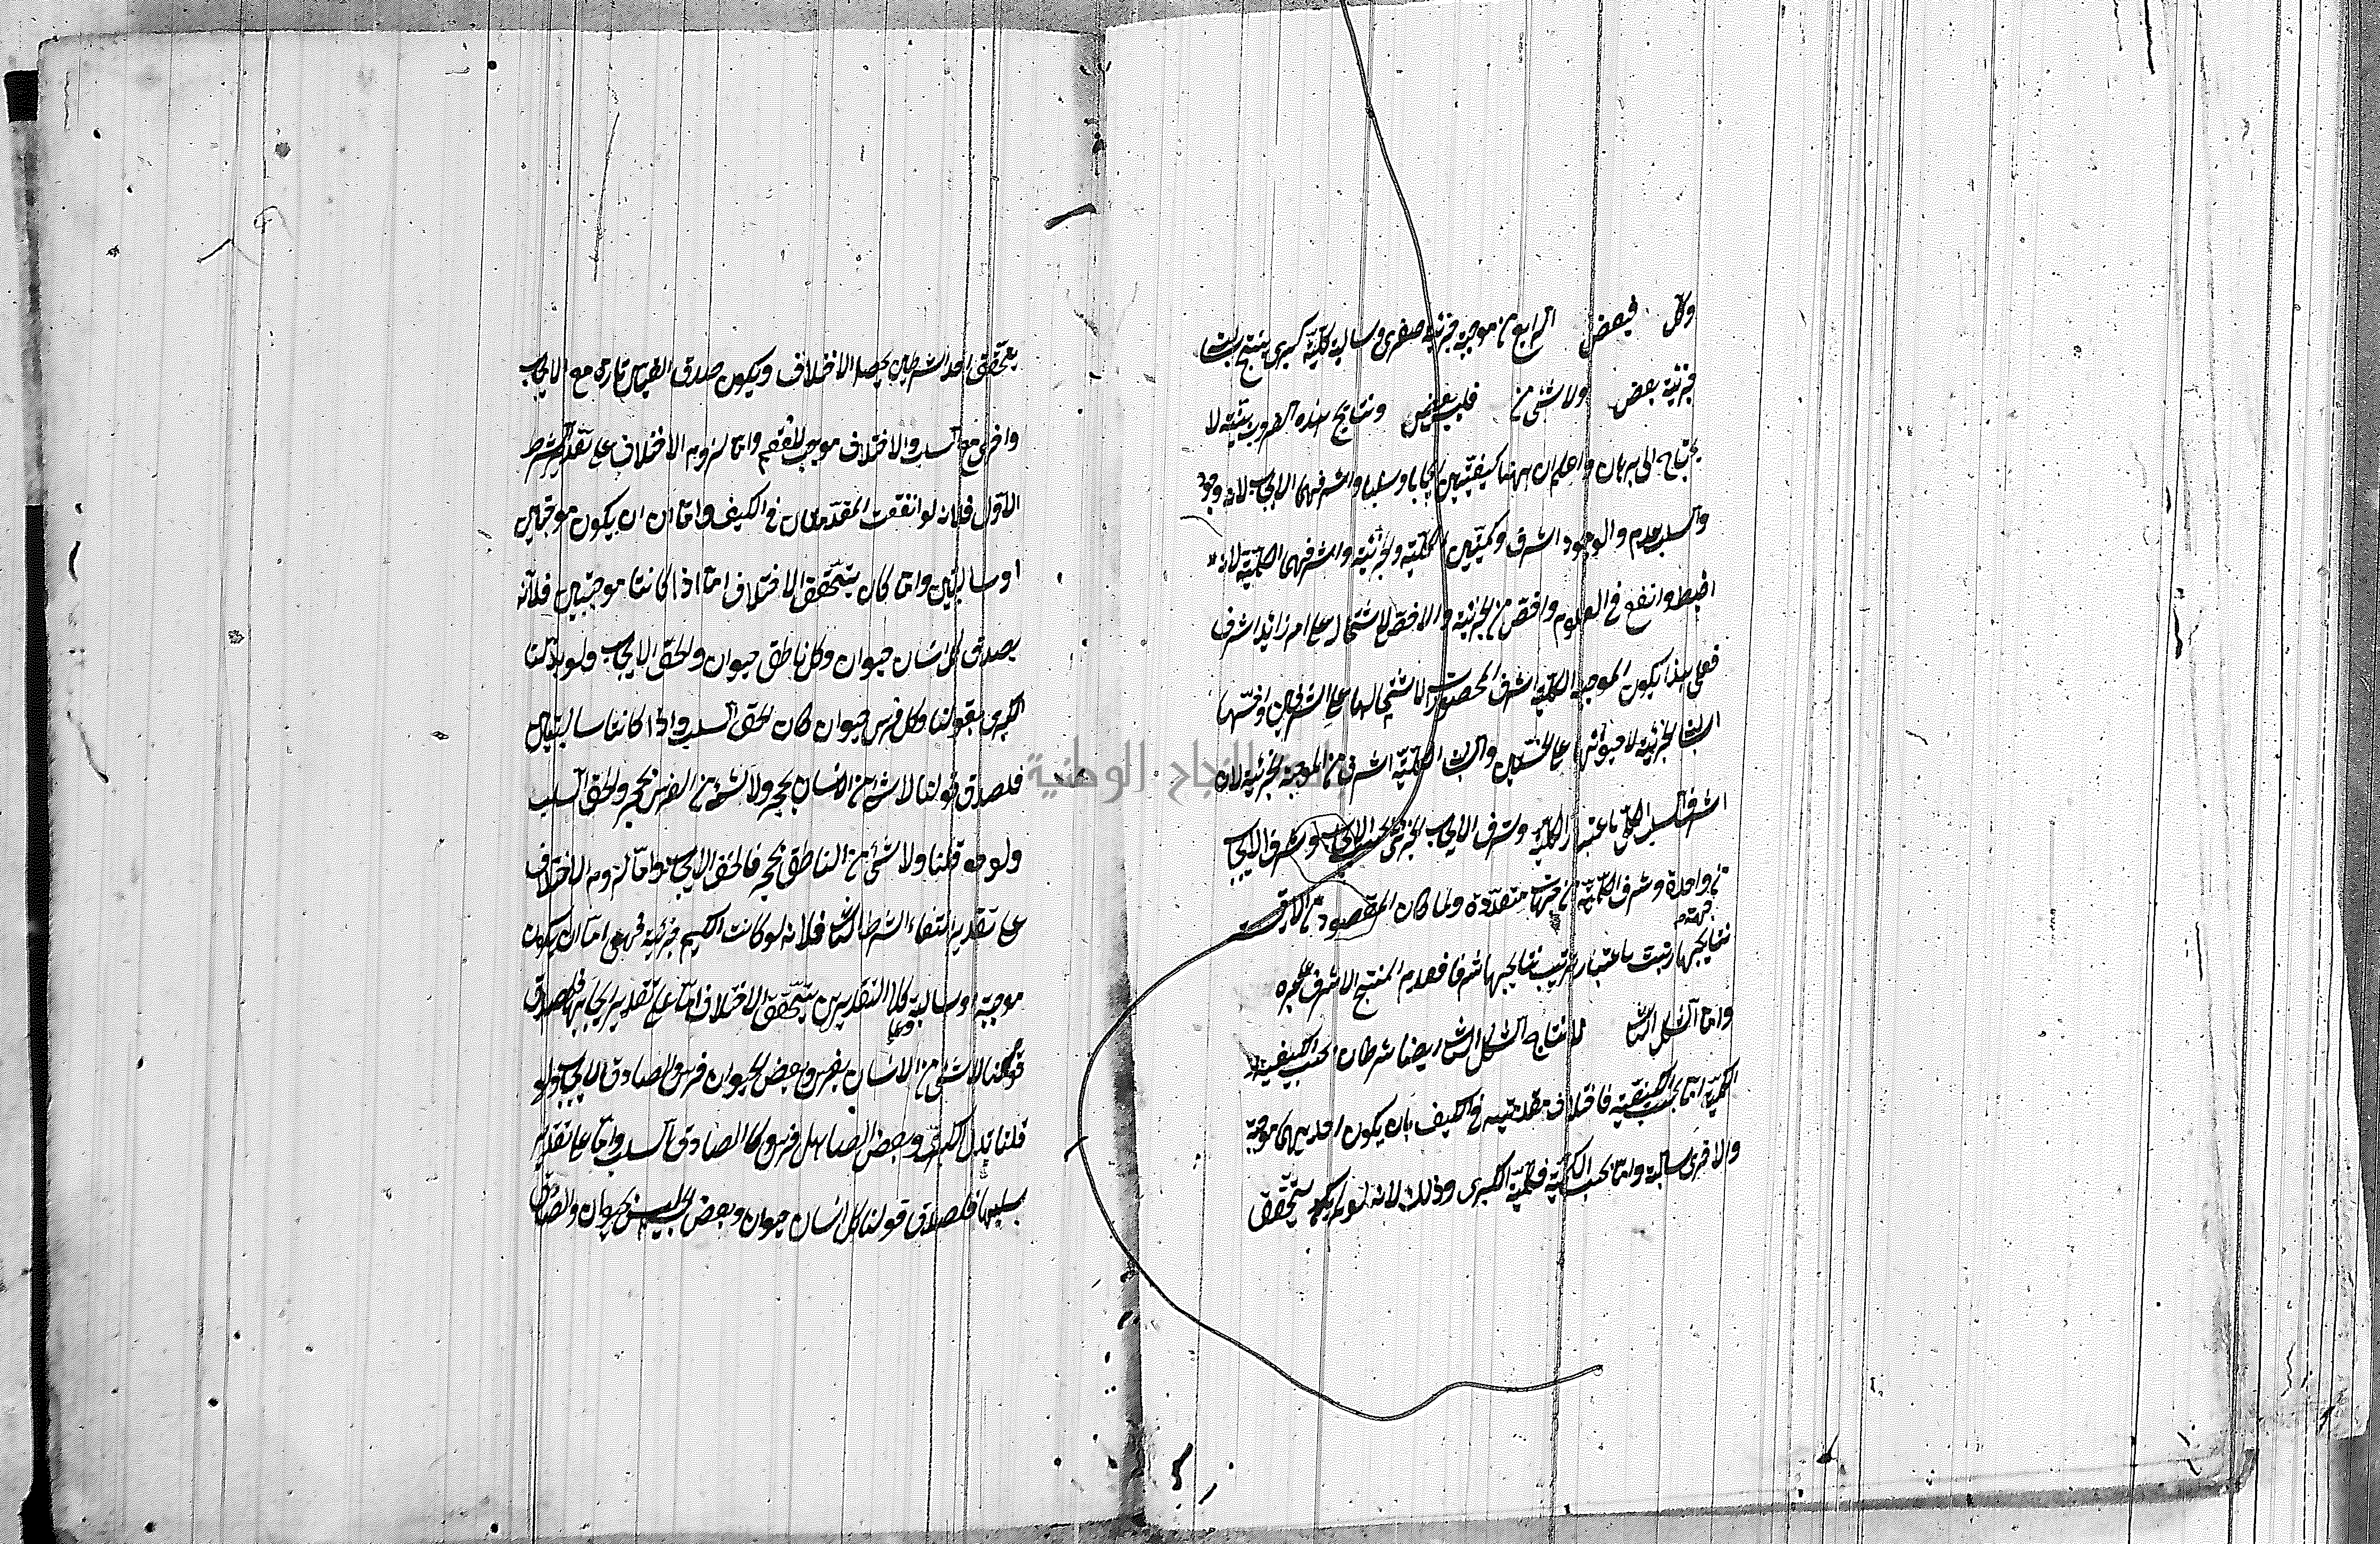 وكل فبعض الرابع من موجبة جزئية صغرى وسالبة كلية كبرى ينتج سالبة
جزئية بعض ولا شئ من فليس بعض ونتايج هذه الضروب بينة لا
يحتاج الى برهان واعلم ان ههنا كيفيتين ايجابا وسلبا واشرفهما الايجاب لانه وجود
والسلب عدم والوجود اشرف وكميتين الكلية والجزئية واشرفهما الكلية لانه
اضبط وانفع في العلوم واخص من الجزئية والاخص لاشتماله على امر زائد اشرف
فعلى هذا يكون الموجبة الكلية اشرف المحصورات لاشتمالها على الشرفين واخسها
السالبة الجزئية لاحتوائها على الخستين والسالبة الكلية اشرف من الموجبة الجزئية لان
اشرف السلب الكلي باعتبار الكلية وشرف الايجاب الجزئي بحسب الايجاب وشرف الايجاب
من واحدة وشرف الكلية من جهات متعددة ولما كان المقصود من الاقيسة
جهة
نتايجها رتبت باعتبار ترتيب نتايجها شرفا فقدم المنتج الاشرف على غيره
واما الشكل الثاني لانتاج الشكل الثاني ايضا شرطان بحسب الكيفية و
الكمية اما بحسب الكيفية فاختلاف مقدمتيه في الكيف بان يكون احديهما موجبة
والاخرى سالبة واما بحسب الكمية فكلية الكبرى وذلك لانه لو لم يكن يتحقق
يتحقق احد الشرطين يحصل الاختلاف ويكون صدق القياس تارة مع الايجاب
واخرى مع السلب والاختلاف موجب للعقم واما لزوم الاختلاف على تقدير الشرط
الاول فلانه لو اتفقت المقدمتان في الكيف فاما ان يكون موجبتين
او سالبتين واما كان يتحقق الاختلاف اما اذا كانتا موجبتين فلانه
يصدق كل انسان حيوان وكل ناطق حيوان والحق الايجاب ولو بدلنا
الكبرى بقولنا وكل فرس حيوان كان الحق السلب واذا كانتا سالبتين
فلصدق قولنا لا شئ من الانسان بحجر ولا شئ من الفرس بحجر والحق السلب
ولو قلنا ولا شئ من الناطق بحجر فالحق الايجاب واما لزوم الاختلاف
على تقدير انتفاء الشرط الثاني فلانه لو كانت الكبرى جزئية فهي اما ان يكون
موجبة او سالبة وعلى كلا التقديرين يتحقق الاختلاف اما على تقدير ايجابها فلصدق
قولنا لا شئ من الانسان بفرس وبعض الحيوان فرس والصادق الايجاب ولو
قلنا بدل الكبرى وبعض الصاهل فرس كان الصادق السلب واما على تقدير
سلبها فلصدق قولنا كل انسان حيوان وبعض الجسم ليس بحيوان والصادق
جامعة النجاح الوطنية